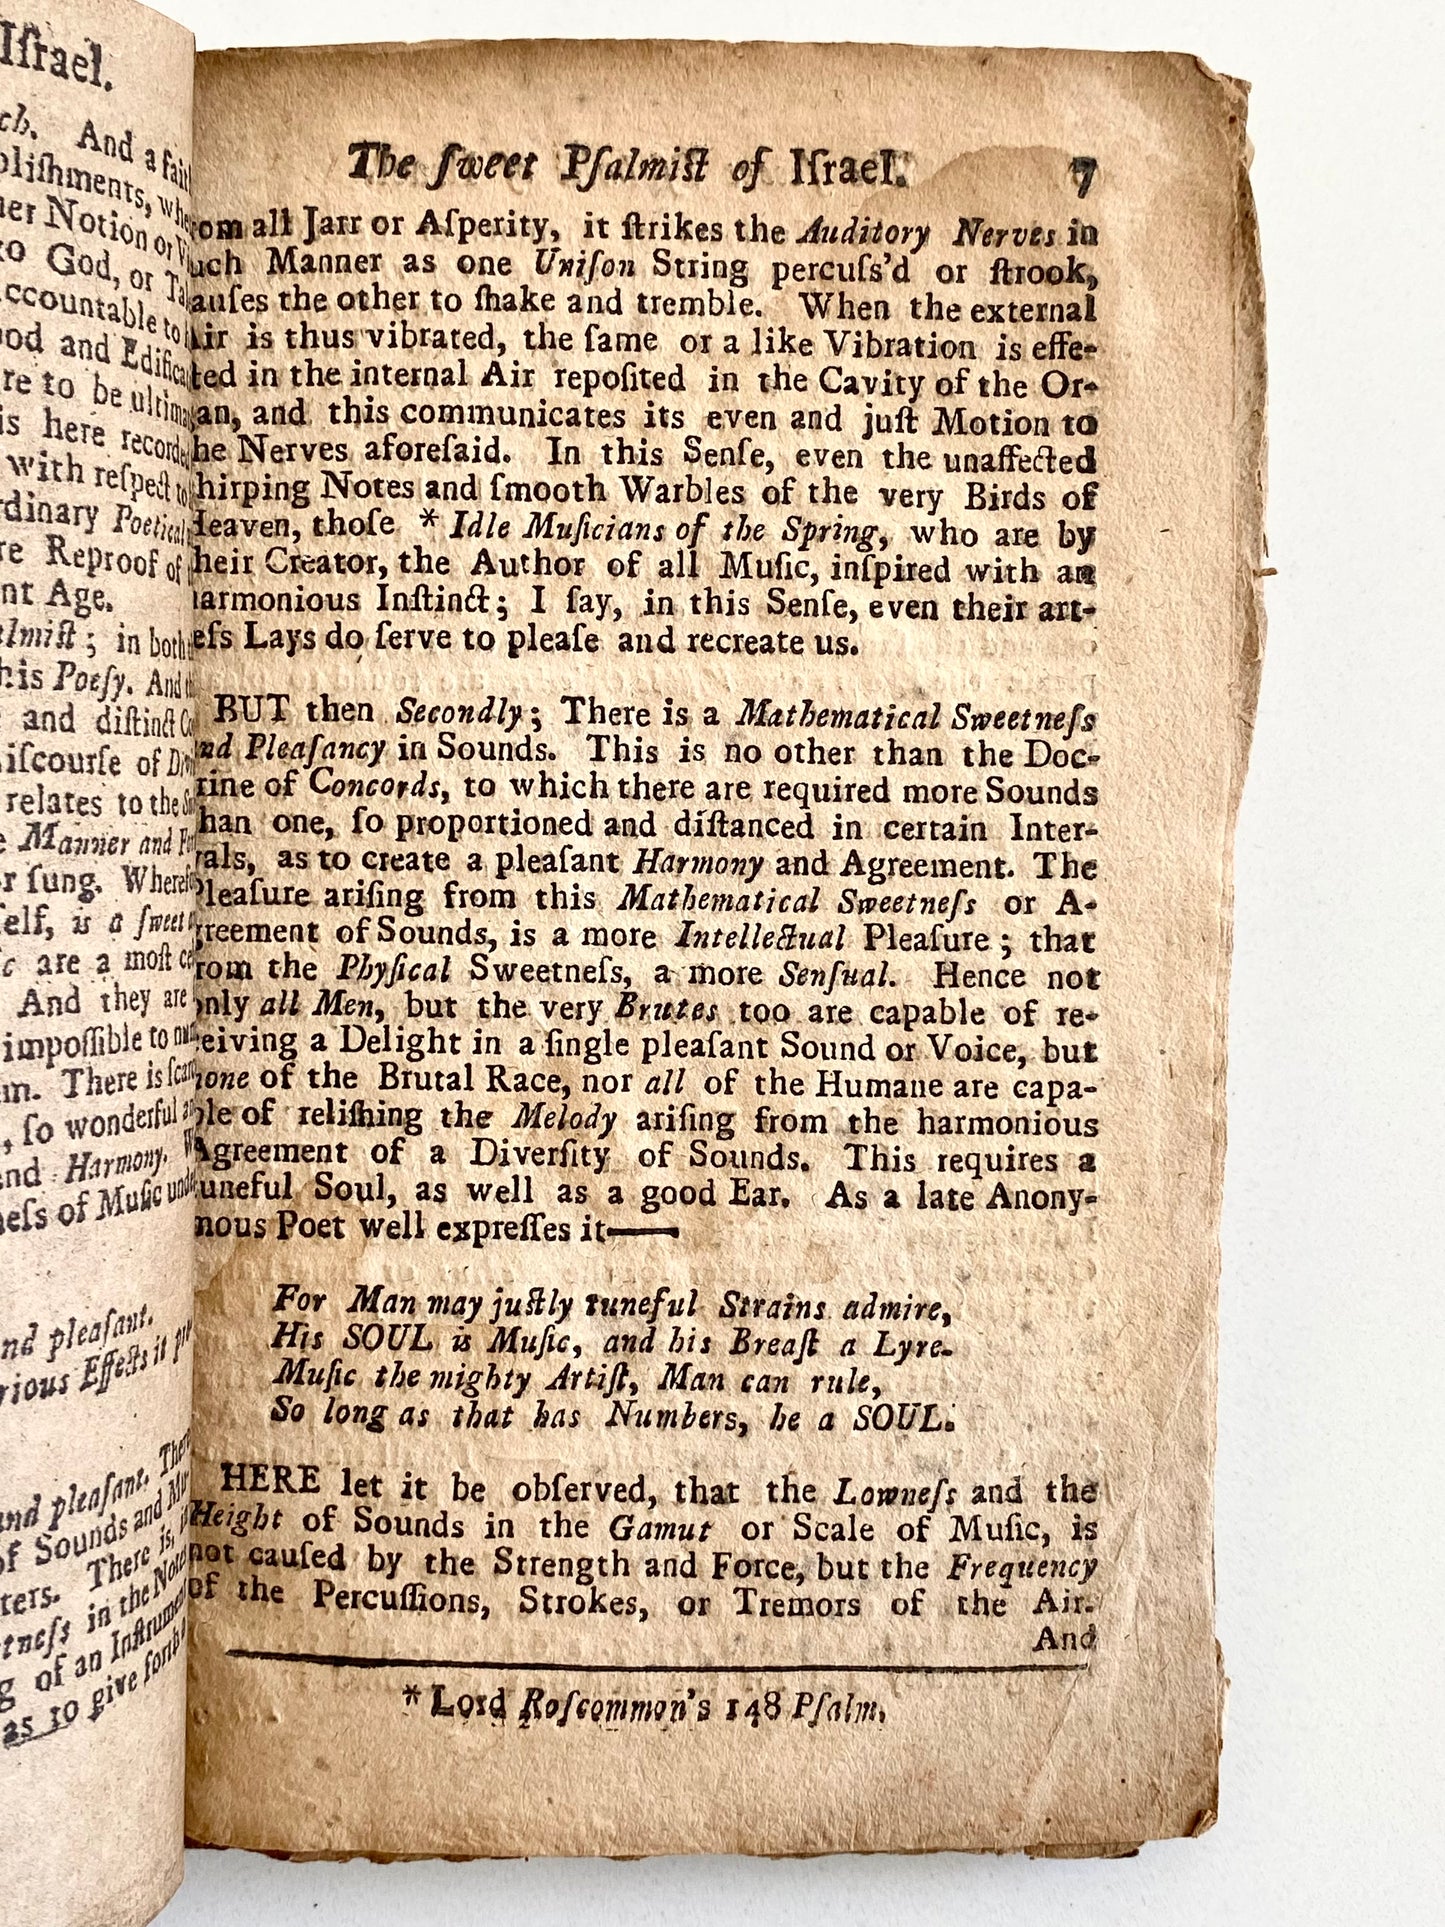 Iſrael.
ch. And a fait
bliſhments, whe
ner Notion or Vi
to God, or Ta
ccountable to
ood and Edifica
re to be ultima
is here recorded
with reſpect to
rdinary Poetical
re Reproof of
nt Age.
lmiſt; in both
his Poeſy. And
and diſtinct Co
iſcourſe of Div
relates to the
e Manner and
r ſung. Wherefo
elf, is a ſweet
c are a moſt ce
And they are
impoſſible to
m. There is ſcar
, ſo wonderful
nd Harmony.
neſs of Muſic unde
nd pleaſant.
rious Effects it
nd pleaſant. There
of Sounds and Mu
ters. There is,
etneſs in the Notes
g of an Inſtrument
as to give forth
The ſweet Pſalmiſt of Iſrael. 7
rom all Jarr or Aſperity, it ſtrikes the Auditory Nerves in
uch Manner as one Uniſon String percuſs'd or ſtrook,
auſes the other to ſhake and tremble. When the external
Air is thus vibrated, the ſame or a like Vibration is effe-
ted in the internal Air repoſited in the Cavity of the Or-
an, and this communicates its even and juſt Motion to
he Nerves aforeſaid. In this Senſe, even the unaffected
hirping Notes and ſmooth Warbles of the very Birds of
Heaven, thoſe * Idle Muſicians of the Spring, who are by
heir Creator, the Author of all Muſic, inſpired with an
harmonious Inſtinct; I ſay, in this Senſe, even their art-
eſs Lays do ſerve to pleaſe and recreate us.
BUT then Secondly; There is a Mathematical Sweetneſs
and Pleaſancy in Sounds. This is no other than the Doc-
trine of Concords, to which there are required more Sounds
than one, ſo proportioned and diſtanced in certain Inter-
vals, as to create a pleaſant Harmony and Agreement. The
Pleaſure ariſing from this Mathematical Sweetneſs or A-
greement of Sounds, is a more Intellectual Pleaſure; that
rom the Phyſical Sweetneſs, a more Senſual. Hence not
only all Men, but the very Brutes too are capable of re-
ceiving a Delight in a ſingle pleaſant Sound or Voice, but
none of the Brutal Race, nor all of the Humane are capa-
ble of reliſhing the Melody ariſing from the harmonious
Agreement of a Diverſity of Sounds. This requires a
tuneful Soul, as well as a good Ear. As a late Anony-
mous Poet well expreſſes it——
For Man may juſtly tuneful Strains admire,
His SOUL is Muſic, and his Breaſt a Lyre.
Muſic the mighty Artiſt, Man can rule,
So long as that has Numbers, he a SOUL.
HERE let it be obſerved, that the Lowneſs and the
Height of Sounds in the Gamut or Scale of Muſic, is
not cauſed by the Strength and Force, but the Frequency
of the Percuſſions, Strokes, or Tremors of the Air.
And
* Lord Roſcommon's 148 Pſalm.